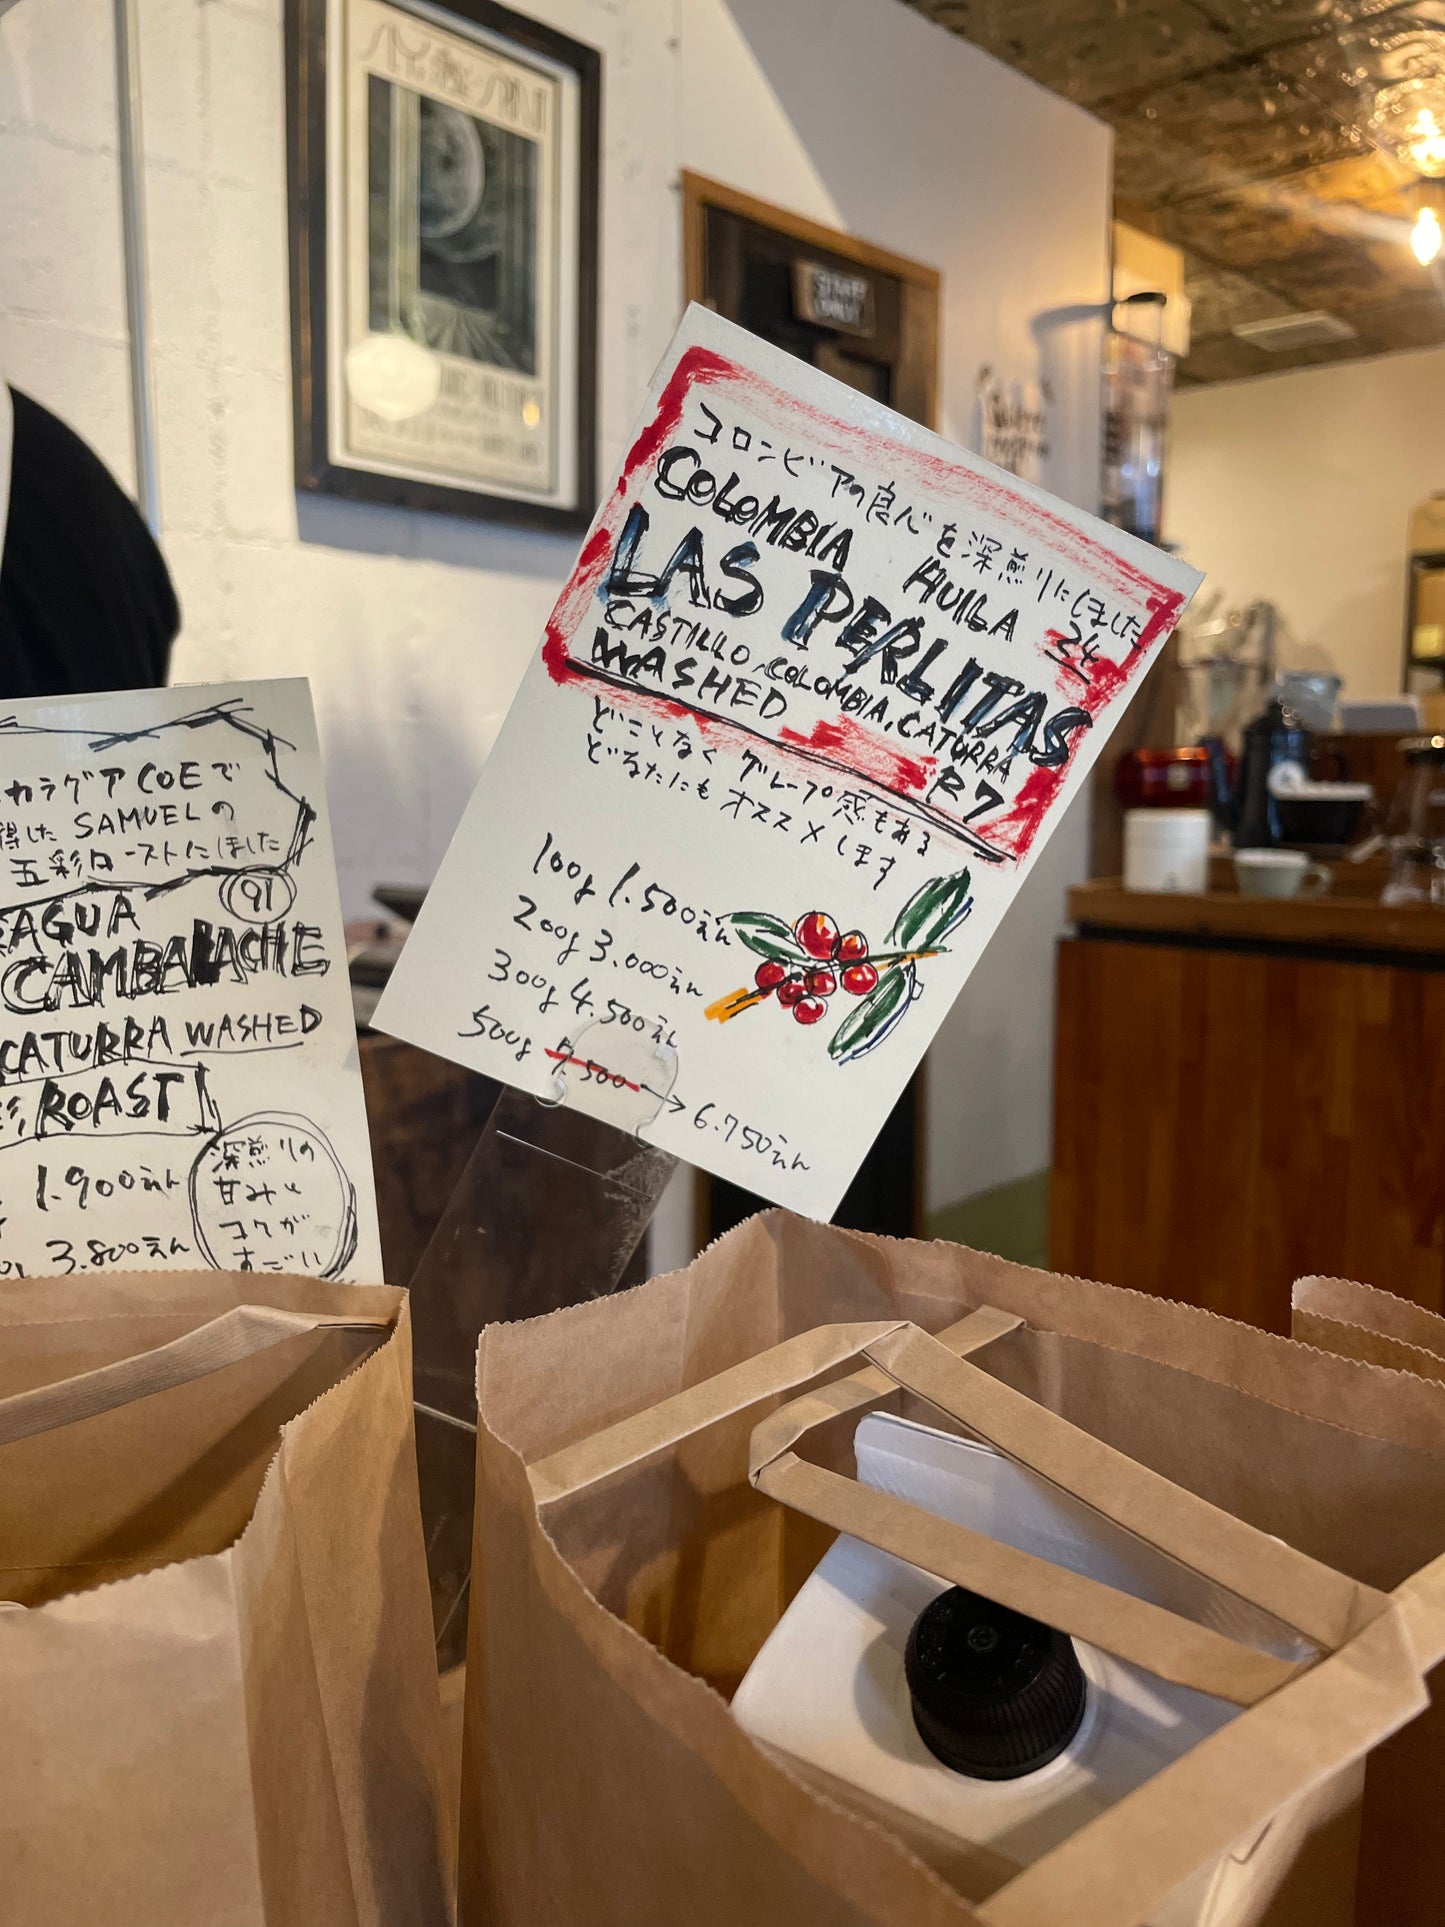 STAFF ONLY
コロンビアの良心を深煎りにしました
COLOMBIA HUILA 24
LAS PERLITAS
CASTILLO, COLOMBIA, CATURRA
WASHED R7
どことなく グレープ感もある
どなたにも オススメします
100g 1.500えん
200g 3.000えん
300g 4.500えん
500g 7.500 → 6.750えん
カラグア COEで
得した SAMUELの
五彩ローストにしました
AGUA 91
CAMBALACHE
CATURRA WASHED
ROAST
1.900えん
3.800えん
深煎りの
甘みと
コクが
すごい